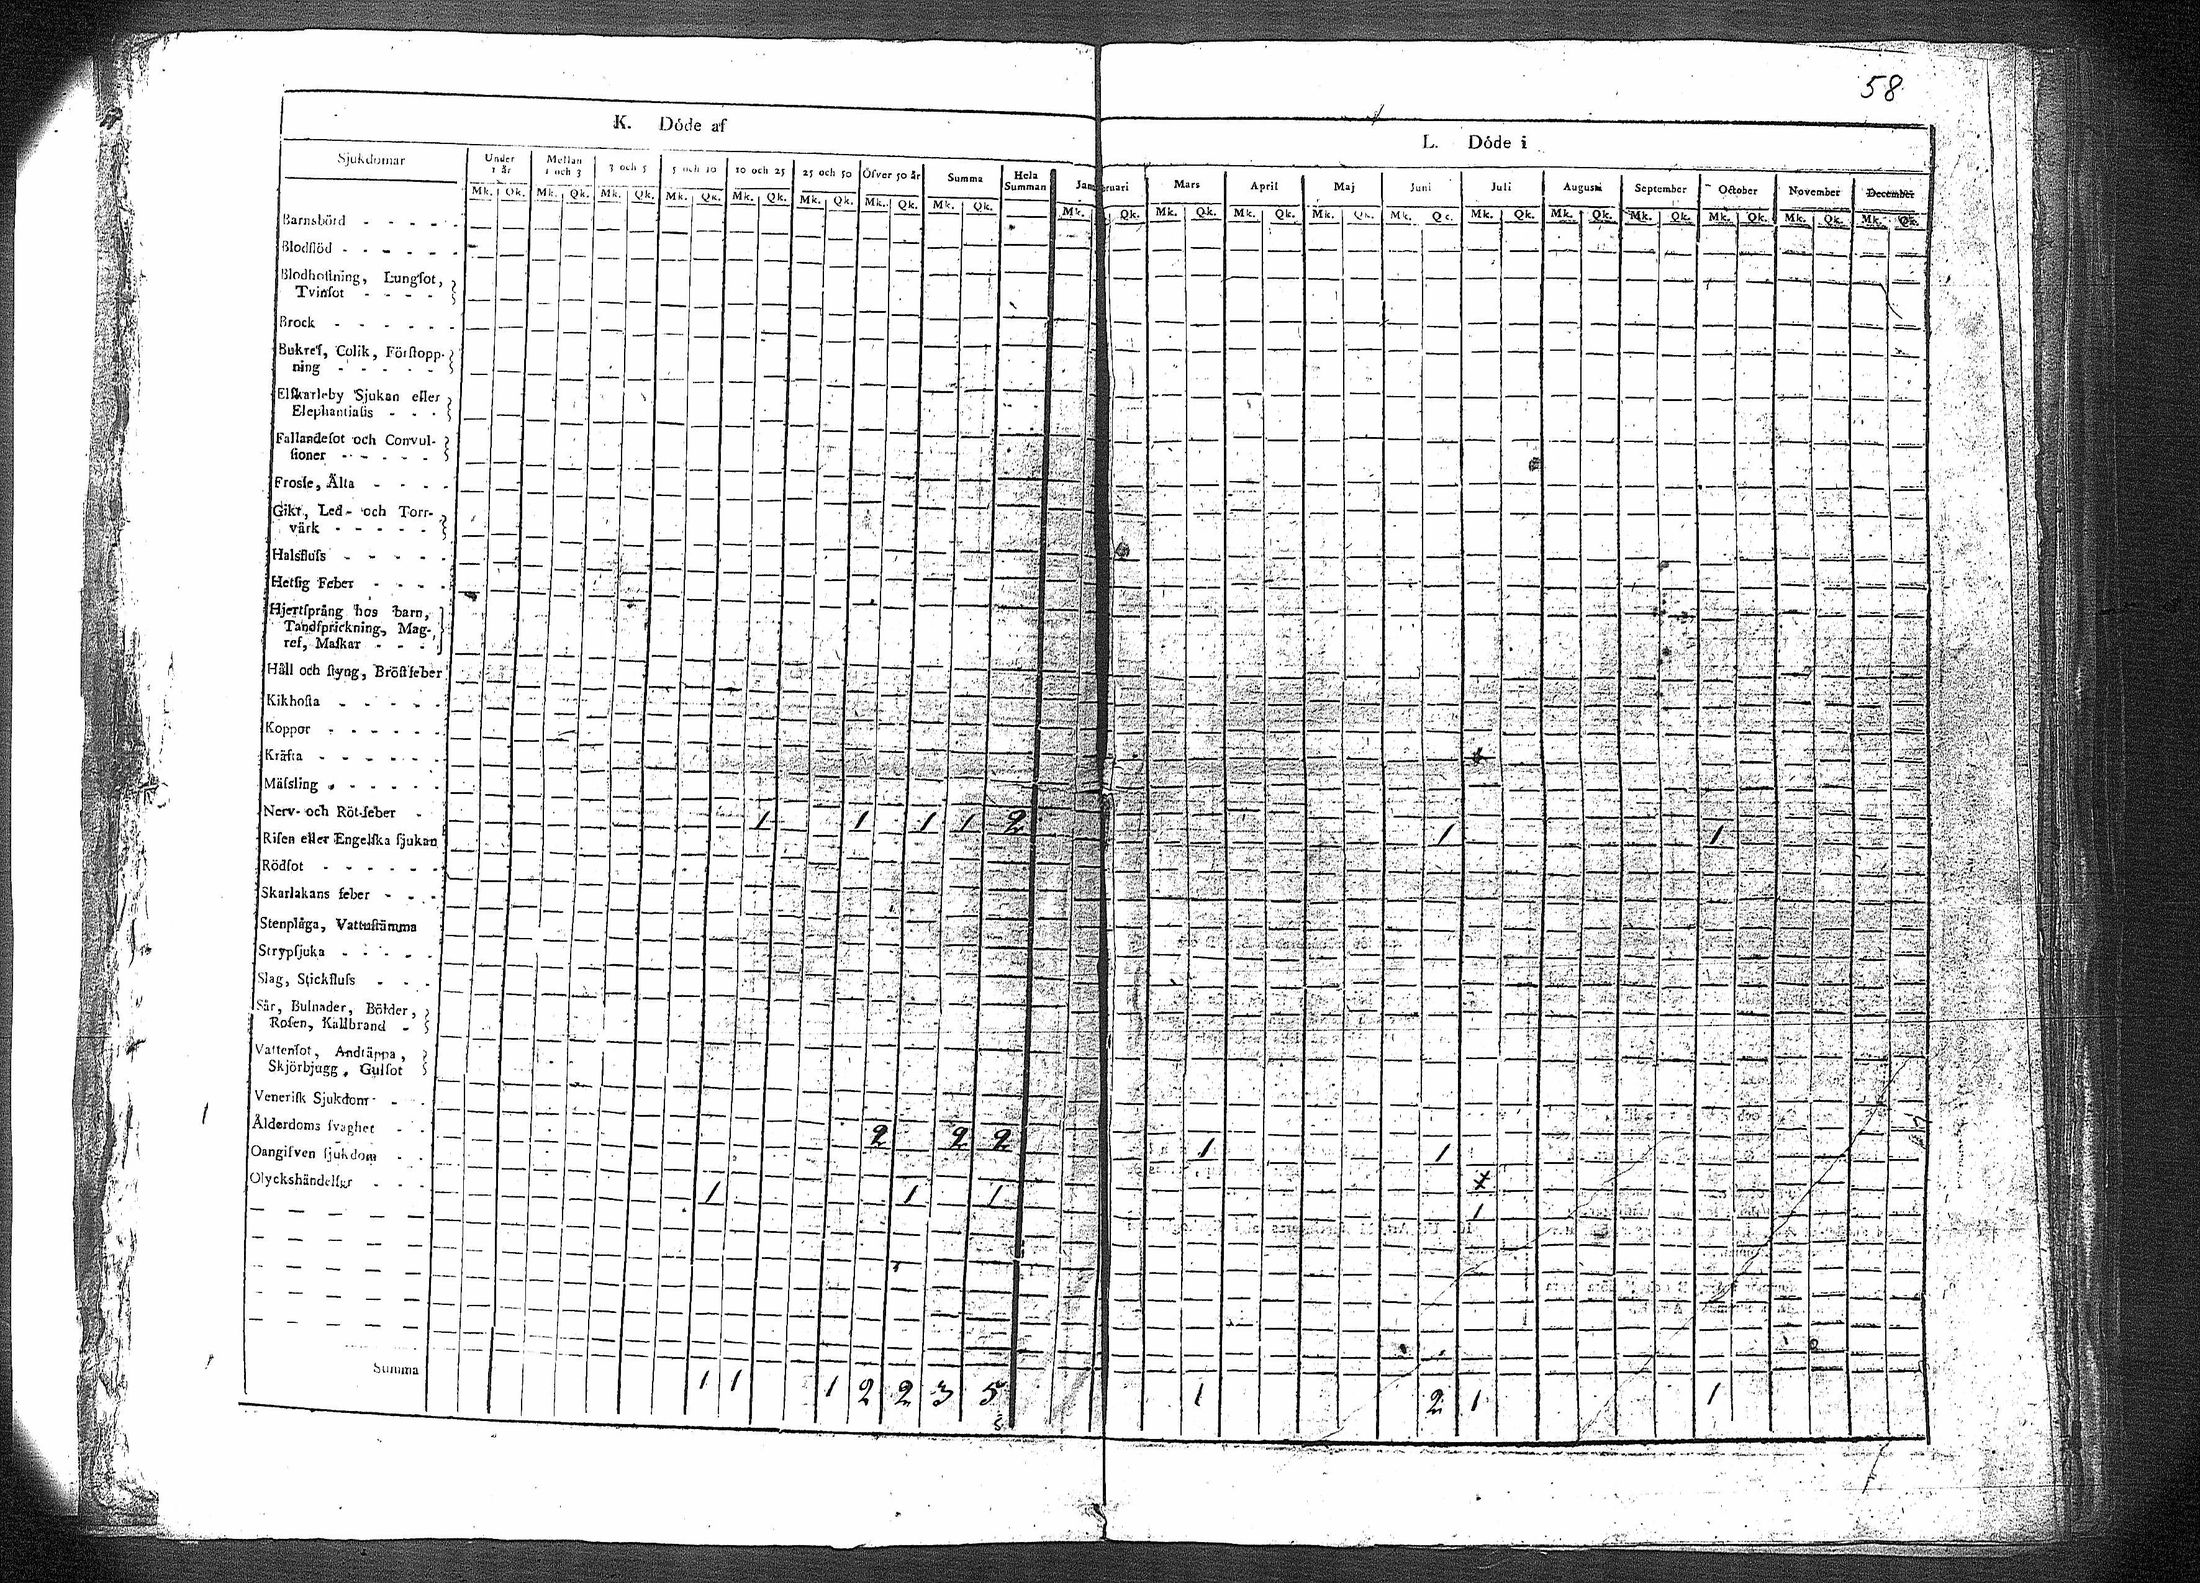 58
K. Döde af
L. Döde i
Sjukdomar Under 1 år Mellan 1 och 3 3 och 5 5 och 10 10 och 25 25 och 50 Öfver 50 år Summa Hela Summan Januari Mars April Maj Juni Juli Augusti September October November December
Mk. Qk. Mk. Qk. Mk. Qk. Mk. Qk. Mk. Qk. Mk. Qk. Mk. Qk. Mk. Qk. Mk. Qk. Mk. Qk. Mk. Qk. Mk. Qk. Mk. Qk. Mk. Qk. Mk. Qk. Mk. Qk. Mk. Qk. Mk. Qk. Mk. Qk.
Barnsbörd - - - - -
Blodflöd - - - - - -
Blodhostning, Lungsot,
Tvinsot - - - -
Brock - - - - - -
Bukref, Colik, Förstopp-
ning - - - - -
Elfkarleby Sjukan eller
Elephantiasis - - -
Fallandesot och Convul-
sioner - - - - -
Frossa, Älta - - - -
Gikt, Led- och Torr-
värk - - - - -
Halsfluss - - - - -
Hetsig Feber - - - -
Hjertsprång hos barn,
Tandsprickning, Mag-
ref, Maskar - - - -
Håll och styng, Bröstfeber
Kikhosta - - - - -
Koppor - - - - - -
Kräfta - - - - - -
Mässling - - - - - -
Nerv- och Röt-feber - 1 1 1 1 2 1 1
Risen eller Engelska sjukan
Rödsot - - - - - -
Skarlakans feber - - -
Stenplåga, Vattustämma
Strypsjuka - - - - -
Slag, Stickfluss - - -
Sår, Bulnader, Bölder,
Rosen, Kallbrand -
Vattensot, Andtäppa,
Skjörbjugg, Gulsot
Venerisk Sjukdom - -
Ålderdoms svaghet - - 2 2 2 1 1
Oangifven sjukdom - -
Olyckshändelser - - - 1 1 1 1
Summa 1 1 1 2 2 3 5 1 2 1 1